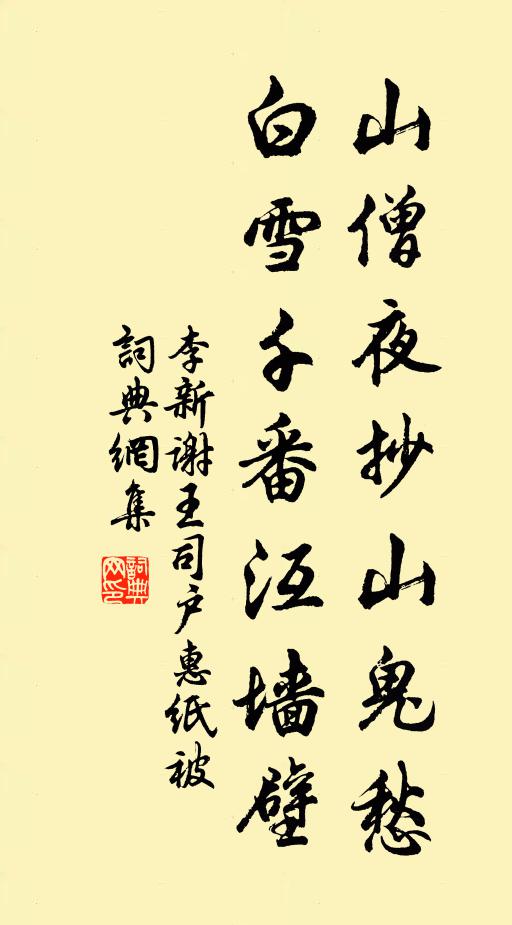 山僧夜抄山鬼愁
白雪千番沍墙壁
李新谢王司户惠纸被
詞典網集
詞典网印